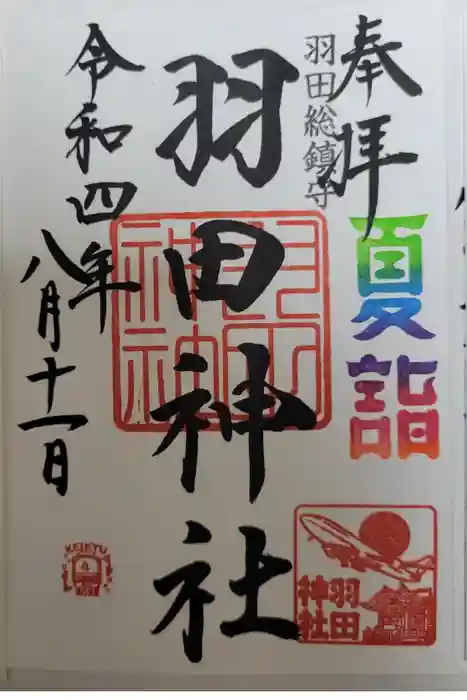 奉拝
夏詣
羽田総鎮守
羽田神社
令和四年
八月十一日
羽田
神社
KEIKYU